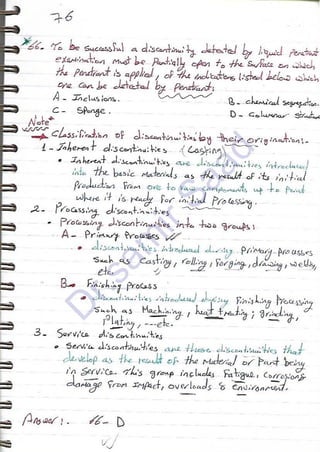 76
66. To be successful a discontinuity detected by liquid Penetrant
examination must be Partially open to the Surface on which
the Penetrant is applied, of the indications listed below which
one can be detected by Penetrant:
A- Inclusions.
B- chemical segregation
C- Sponge.
D- Columnar Structure
Note*
→ Classification of discontinuities by their origination:-
1- Inherent discontinuities (Casting)
• Inherent discontinuities are discontinuities introduced
into the basic materials as the result of its initial
Production From ore to raw components up to Point
where it is ready For initial Processing.
2- Processing discontinuities
• Processing discontinuities into two groups:
A- Primary Processes
• discontinuities introduced during Primary Processes
Such as Casting, rolling, Forging, drawing, welding,
etc.
B- Finishing process
• discontinuities introduced during Finishing Processing
Such as Machining, heat treating, grinding,
Plating, ---etc.
3- Service discontinuities
• Service discontinuities are those discontinuities that
develop as the result of the Material or Part being
in Service. This group includes Fatigue, Corrosions
damage From impact, overloads & environment.
Answer:. 66- D